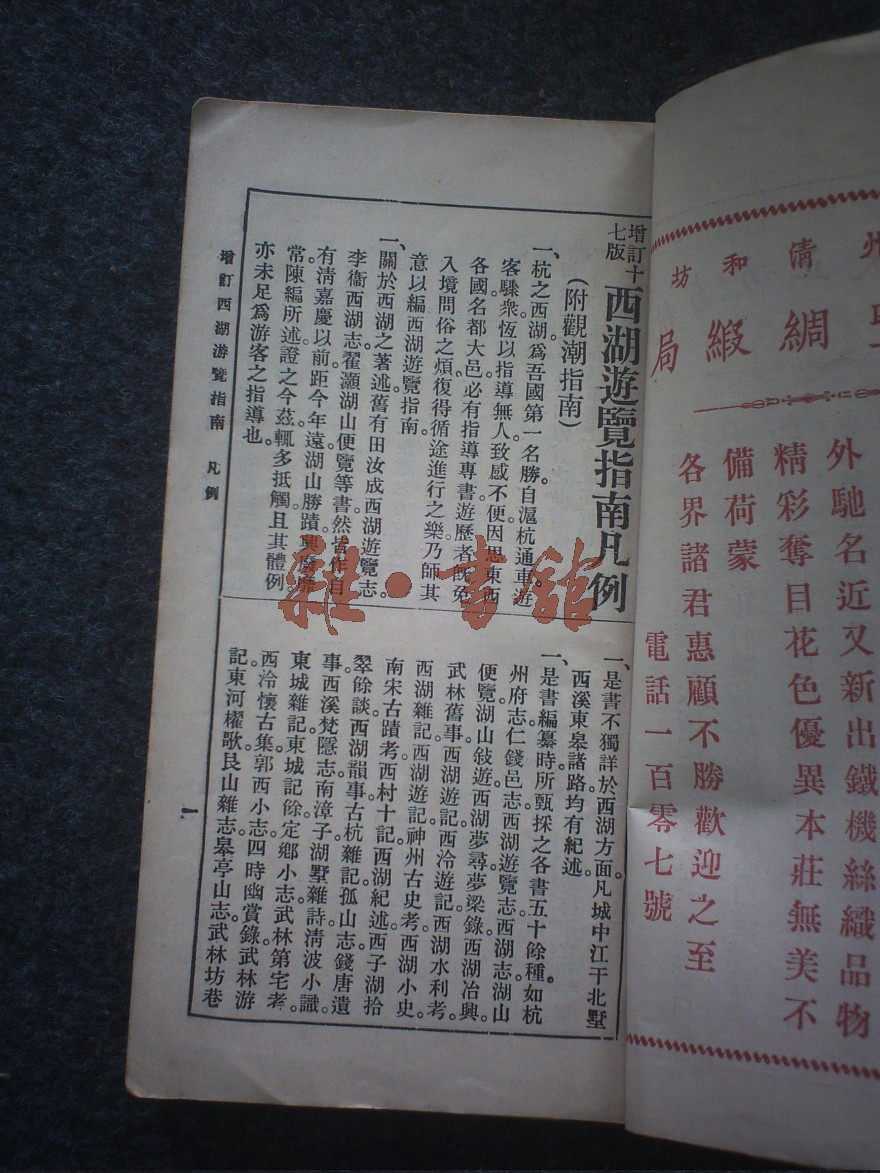 州清和坊
綢緞局
外馳名近又新出鐵機絲織品物
精彩奪目花色優異本莊無美不
備荷蒙
各界諸君惠顧不勝歡迎之至
電話一百零七號
增訂十七版
西湖遊覽指南凡例
（附觀潮指南）
一、杭之西湖爲吾國第一名勝。自滬杭通車。遊
客驟衆。恆以指導無人。致感不便。因思東西
各國名都大邑。必有指導專書。遊歷者旣免
入境問俗之煩。復得循途進行之樂。乃師其
意。以編西湖遊覽指南。
一、關於西湖之著述。舊有田汝成西湖遊覽志。
李衞西湖志。翟灝湖山便覽等書。然皆作自
有淸嘉慶以前。距今年遠。湖山勝蹟。興廢靡
常。陳編所述。證之今茲。輒多抵觸。且其體例。
亦未足爲游客之指導也。
一、是書不獨詳於西湖方面。凡城中江干北墅
西溪東皋諸路。均有紀述。
一、是書編纂時所甄採之各書五十餘種。如杭
州府志。仁錢邑志。西湖遊覽志。西湖志。湖山
便覽。湖山敍遊。西湖夢尋。夢梁錄。西湖冶興。
武林舊事。西湖遊記。西泠遊記。西湖水利考。
西湖雜記。西湖遊記。神州古史考。西湖小史。
南宋古蹟考。西村十記。西湖紀述。西子湖拾
翠餘談。西湖韻事。古杭雜記。孤山志。錢唐遺
事。西溪梵隱志。南漳子。湖墅雜詩。淸波小識。
東城雜記。東城記餘。定鄉小志。武林第宅考。
西泠懷古集。郭西小志。四時幽賞錄。武林游
記。東河櫂歌。艮山雜志。皋亭山志。武林坊巷
增訂西湖游覽指南 凡例
一
雜·書館